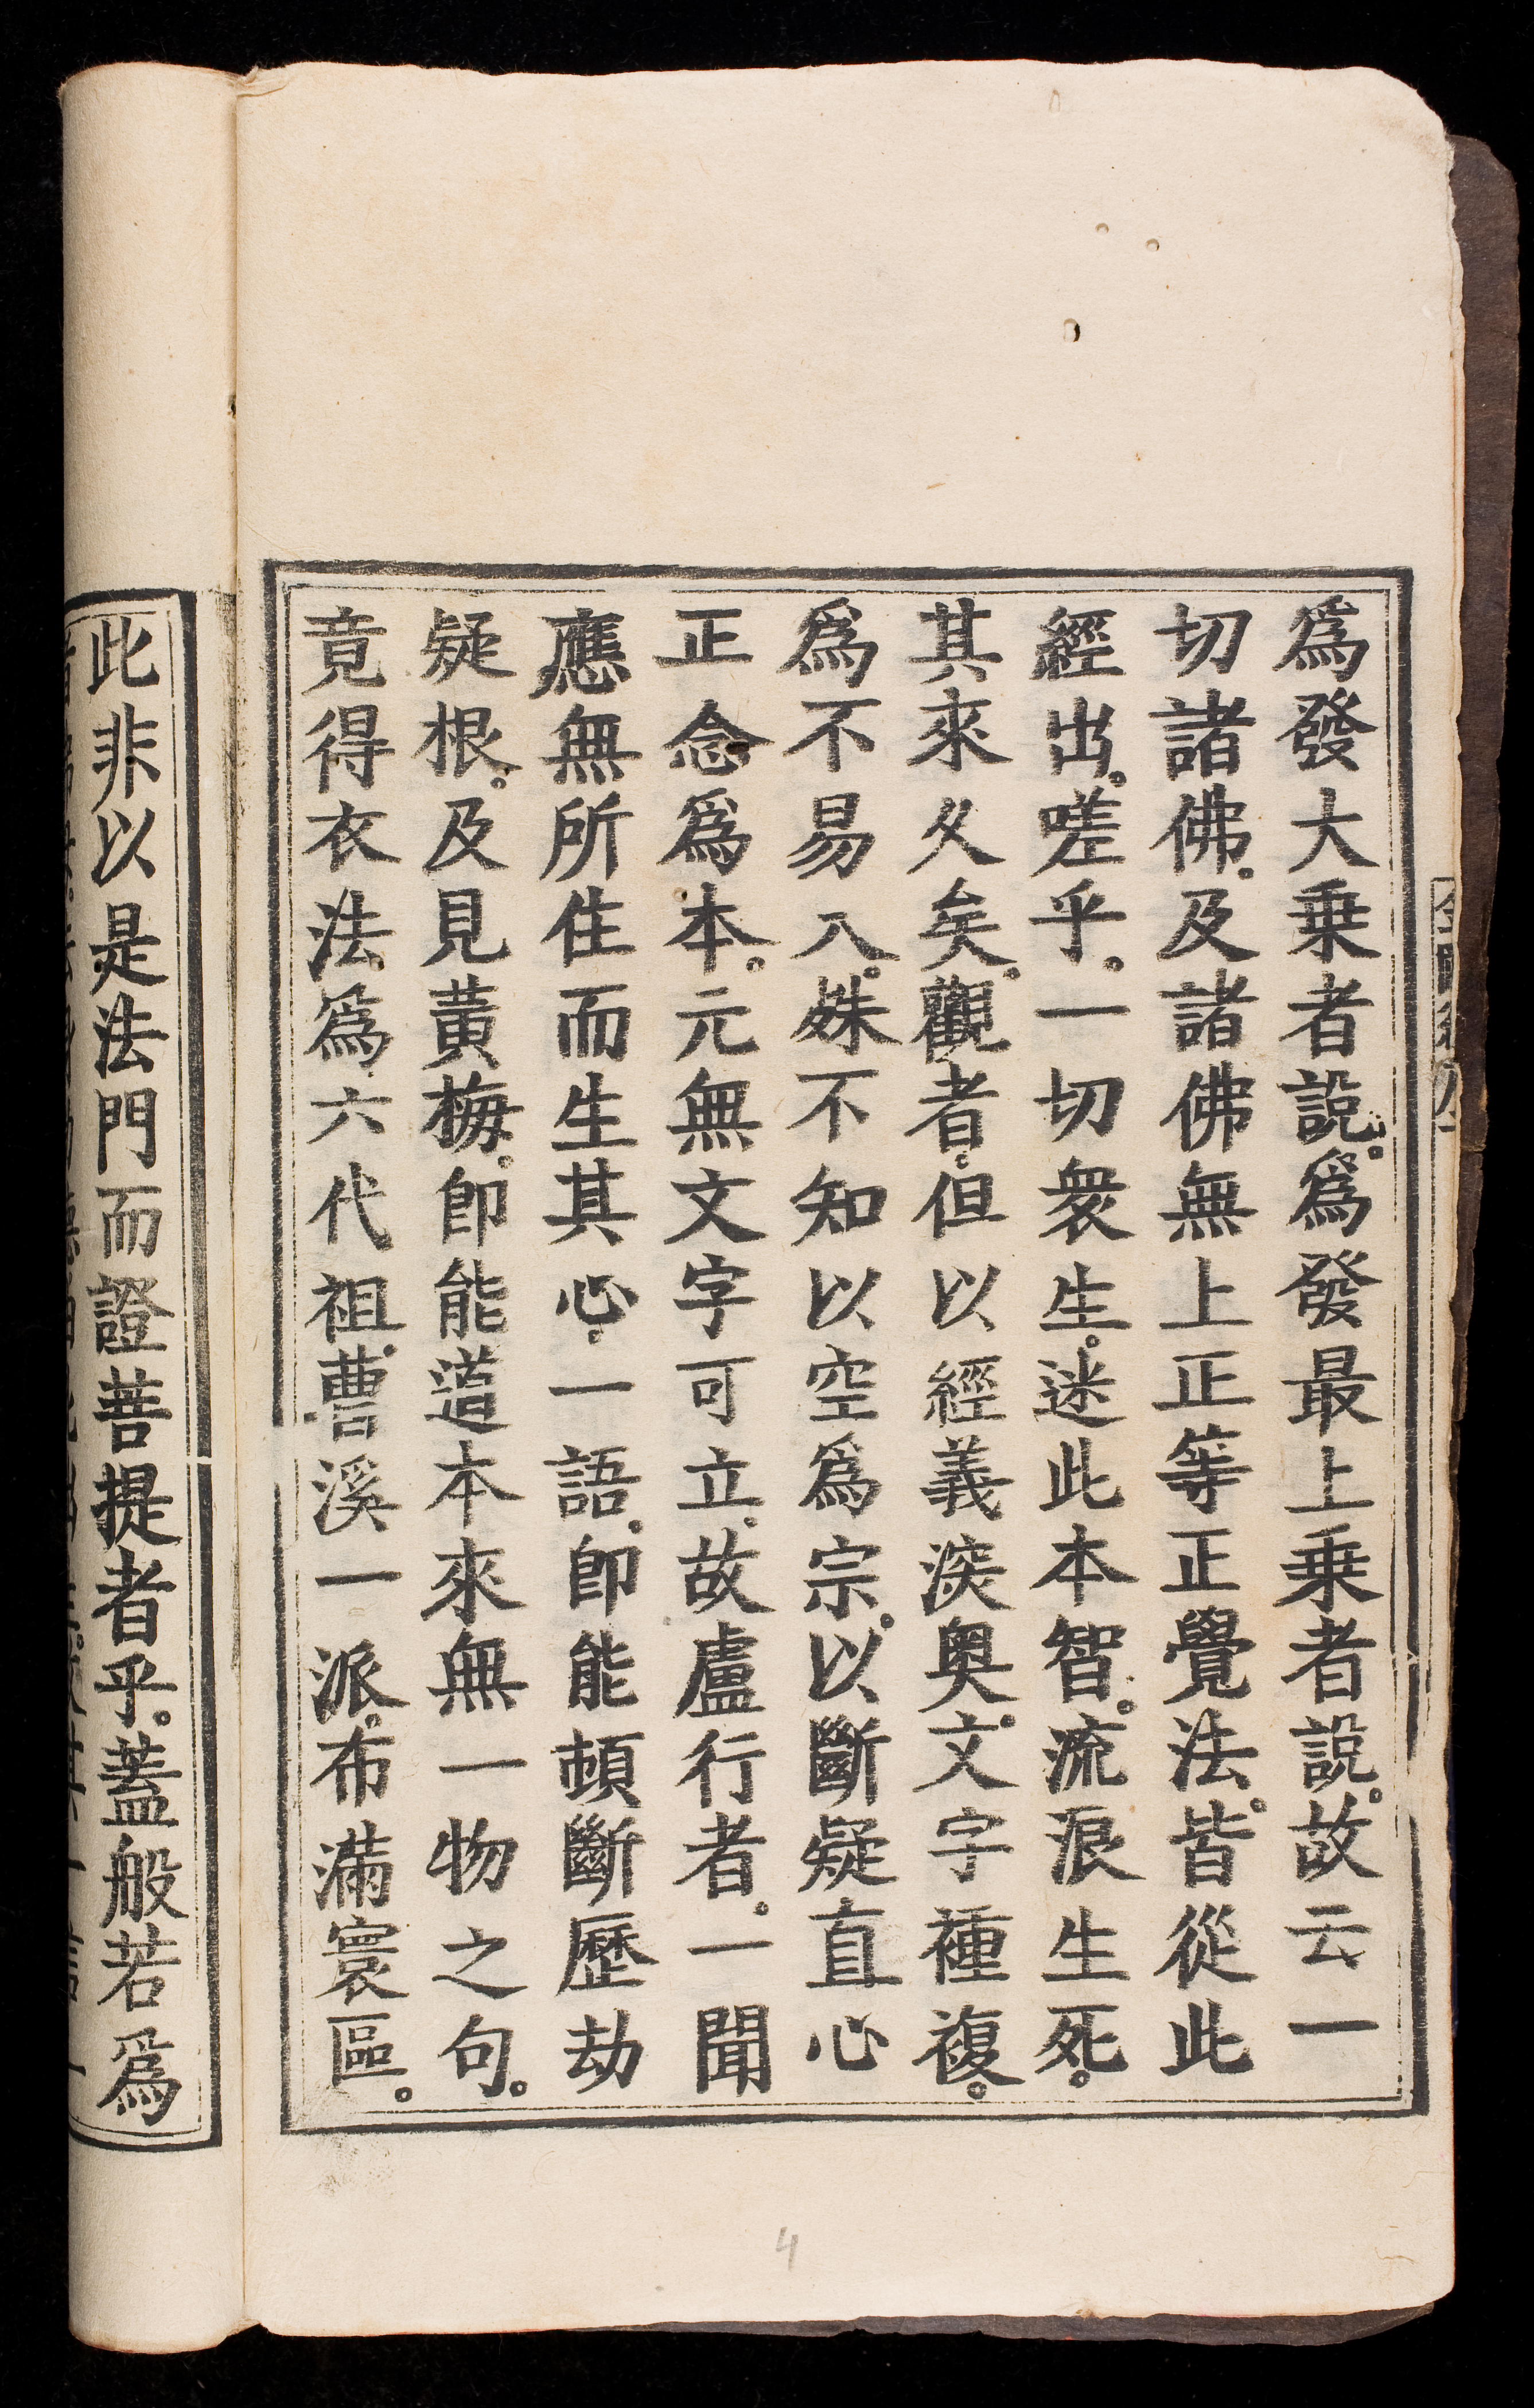 爲發大乗者說。爲發最上乗者說。故云一
切諸佛。及諸佛無上正等正覺法。皆從此
經出。嗟乎。一切衆生。迷此本智。流浪生死。
其來久矣。觀者。但以經義深奥。文字種複。
爲不易入。姝不知以空爲宗。以斷疑直心
正念爲本。元無文字可立。故盧行者。一聞
應無所住而生其心。一語。卽能頓斷歷劫
疑根。及見黃梅。卽能道本來無一物之句。
竟得衣法。爲六代祖。曹溪一派。布滿寰區。
此非以是法門而證菩提者乎。蓋般若爲